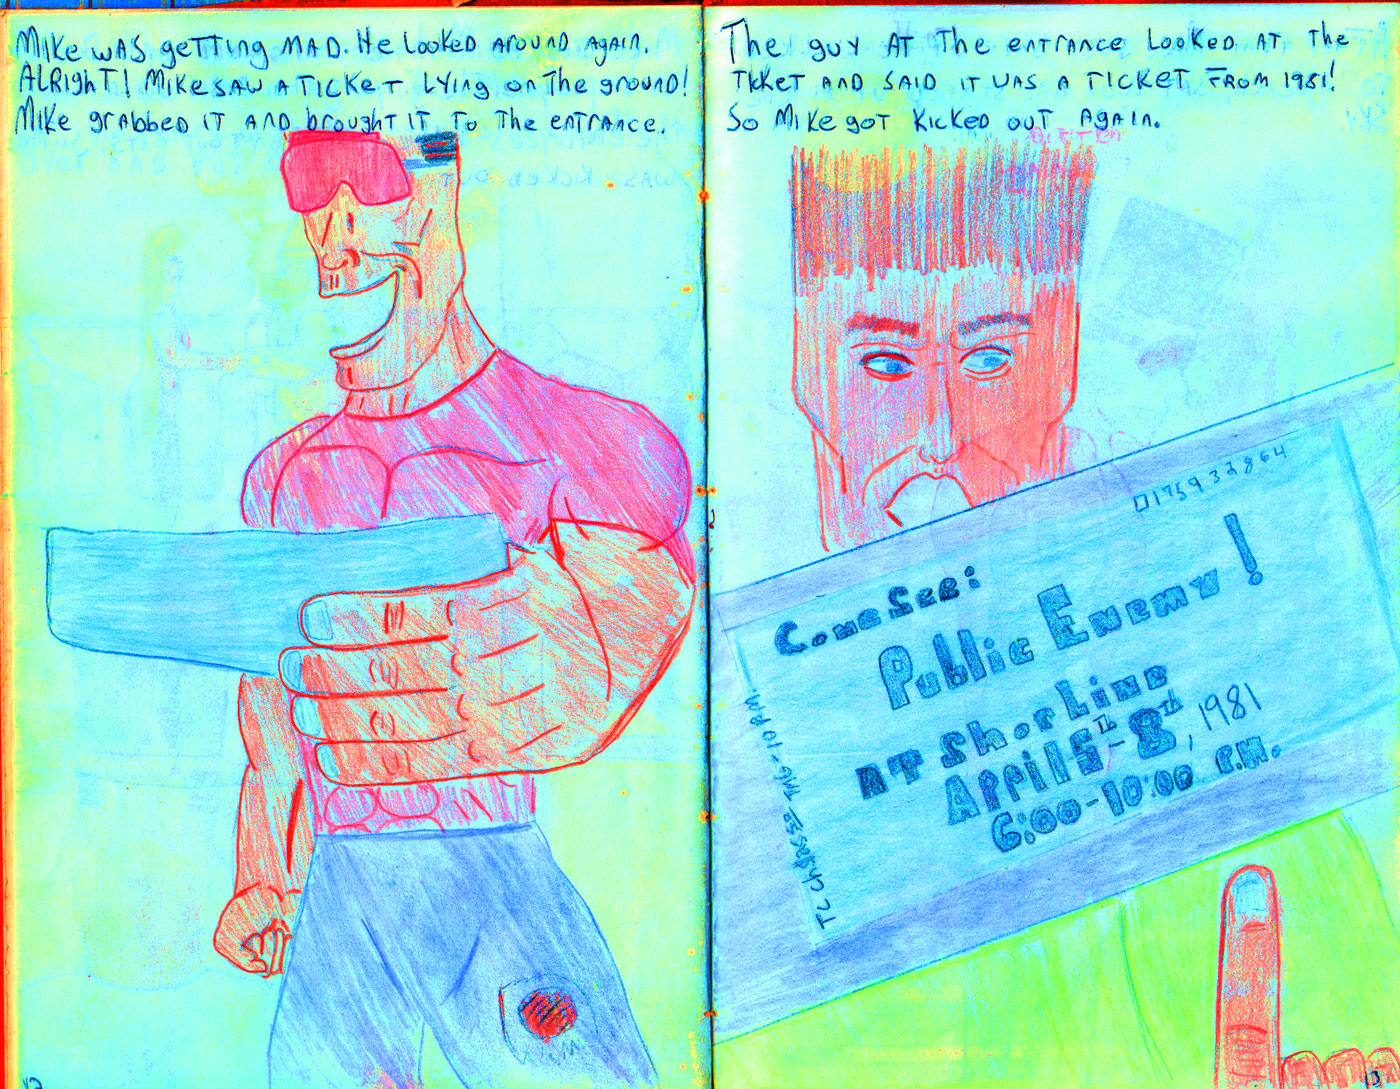 Mike was getting mad. He looked around again.
Alright! Mike saw a ticket lying on the ground!
Mike grabbed it and brought it to the entrance.
12
The guy at the entrance looked at the
ticket and said it was a ticket from 1981!
So Mike got kicked out again.
01759332864
Come See:
Public Enemy!
at ShorLine
April 5th-8th, 1981
6:00-10:00 P.M.
13